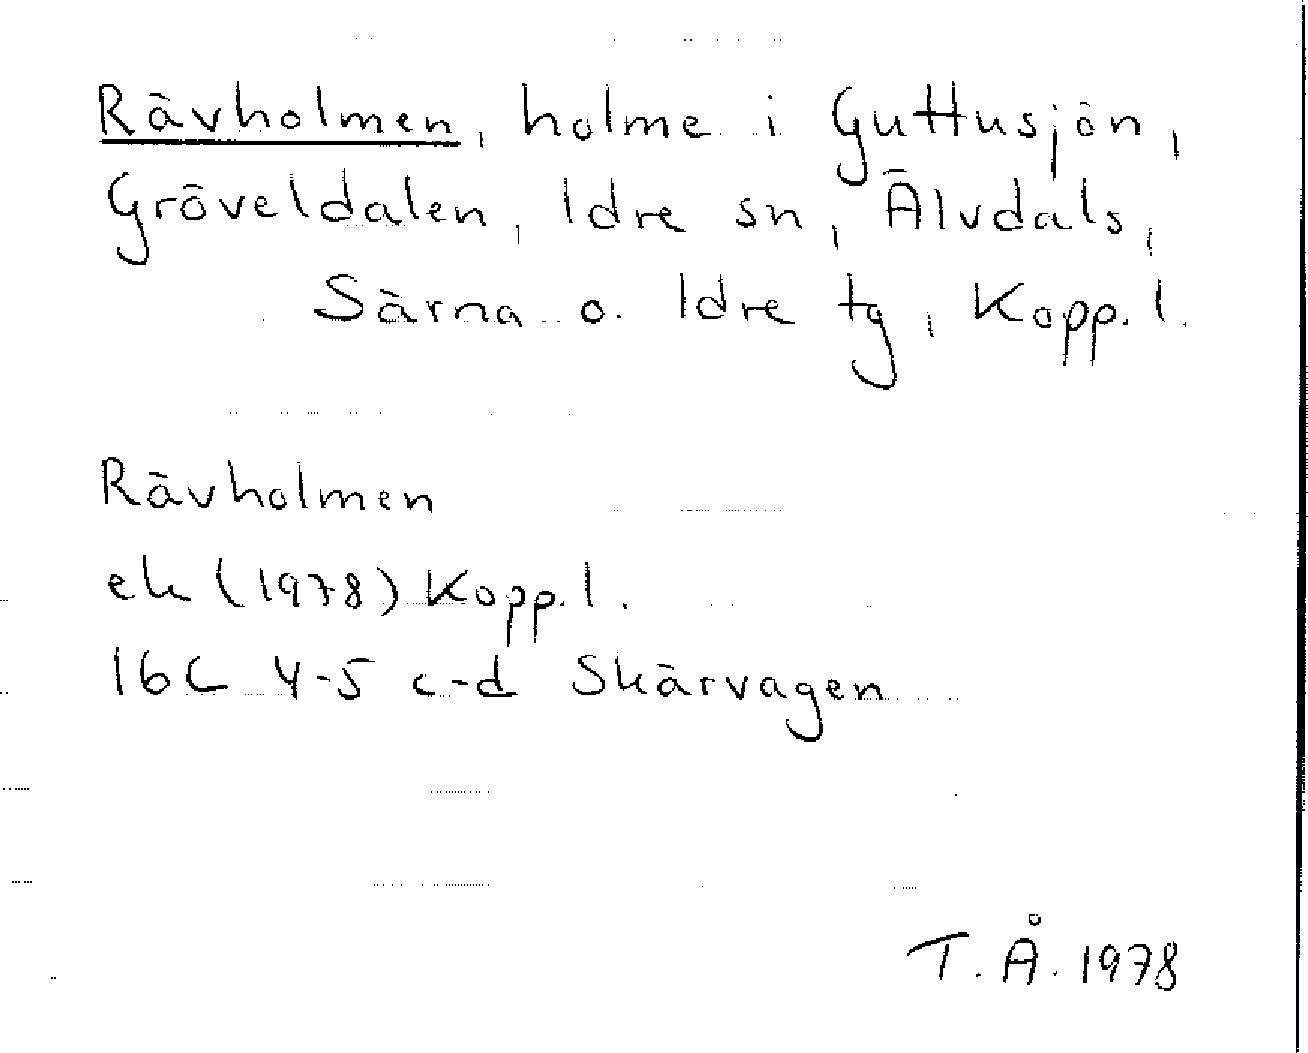 Rävholmen, holme i Guttusjön,
Gröveldalen, Idre sn, Älvdals,
Särna o. Idre tg, Kopp. l.
Rävholmen
ek (1978) Kopp. l.
16C 4-5 c-d Skärvagen
T. Å. 1978